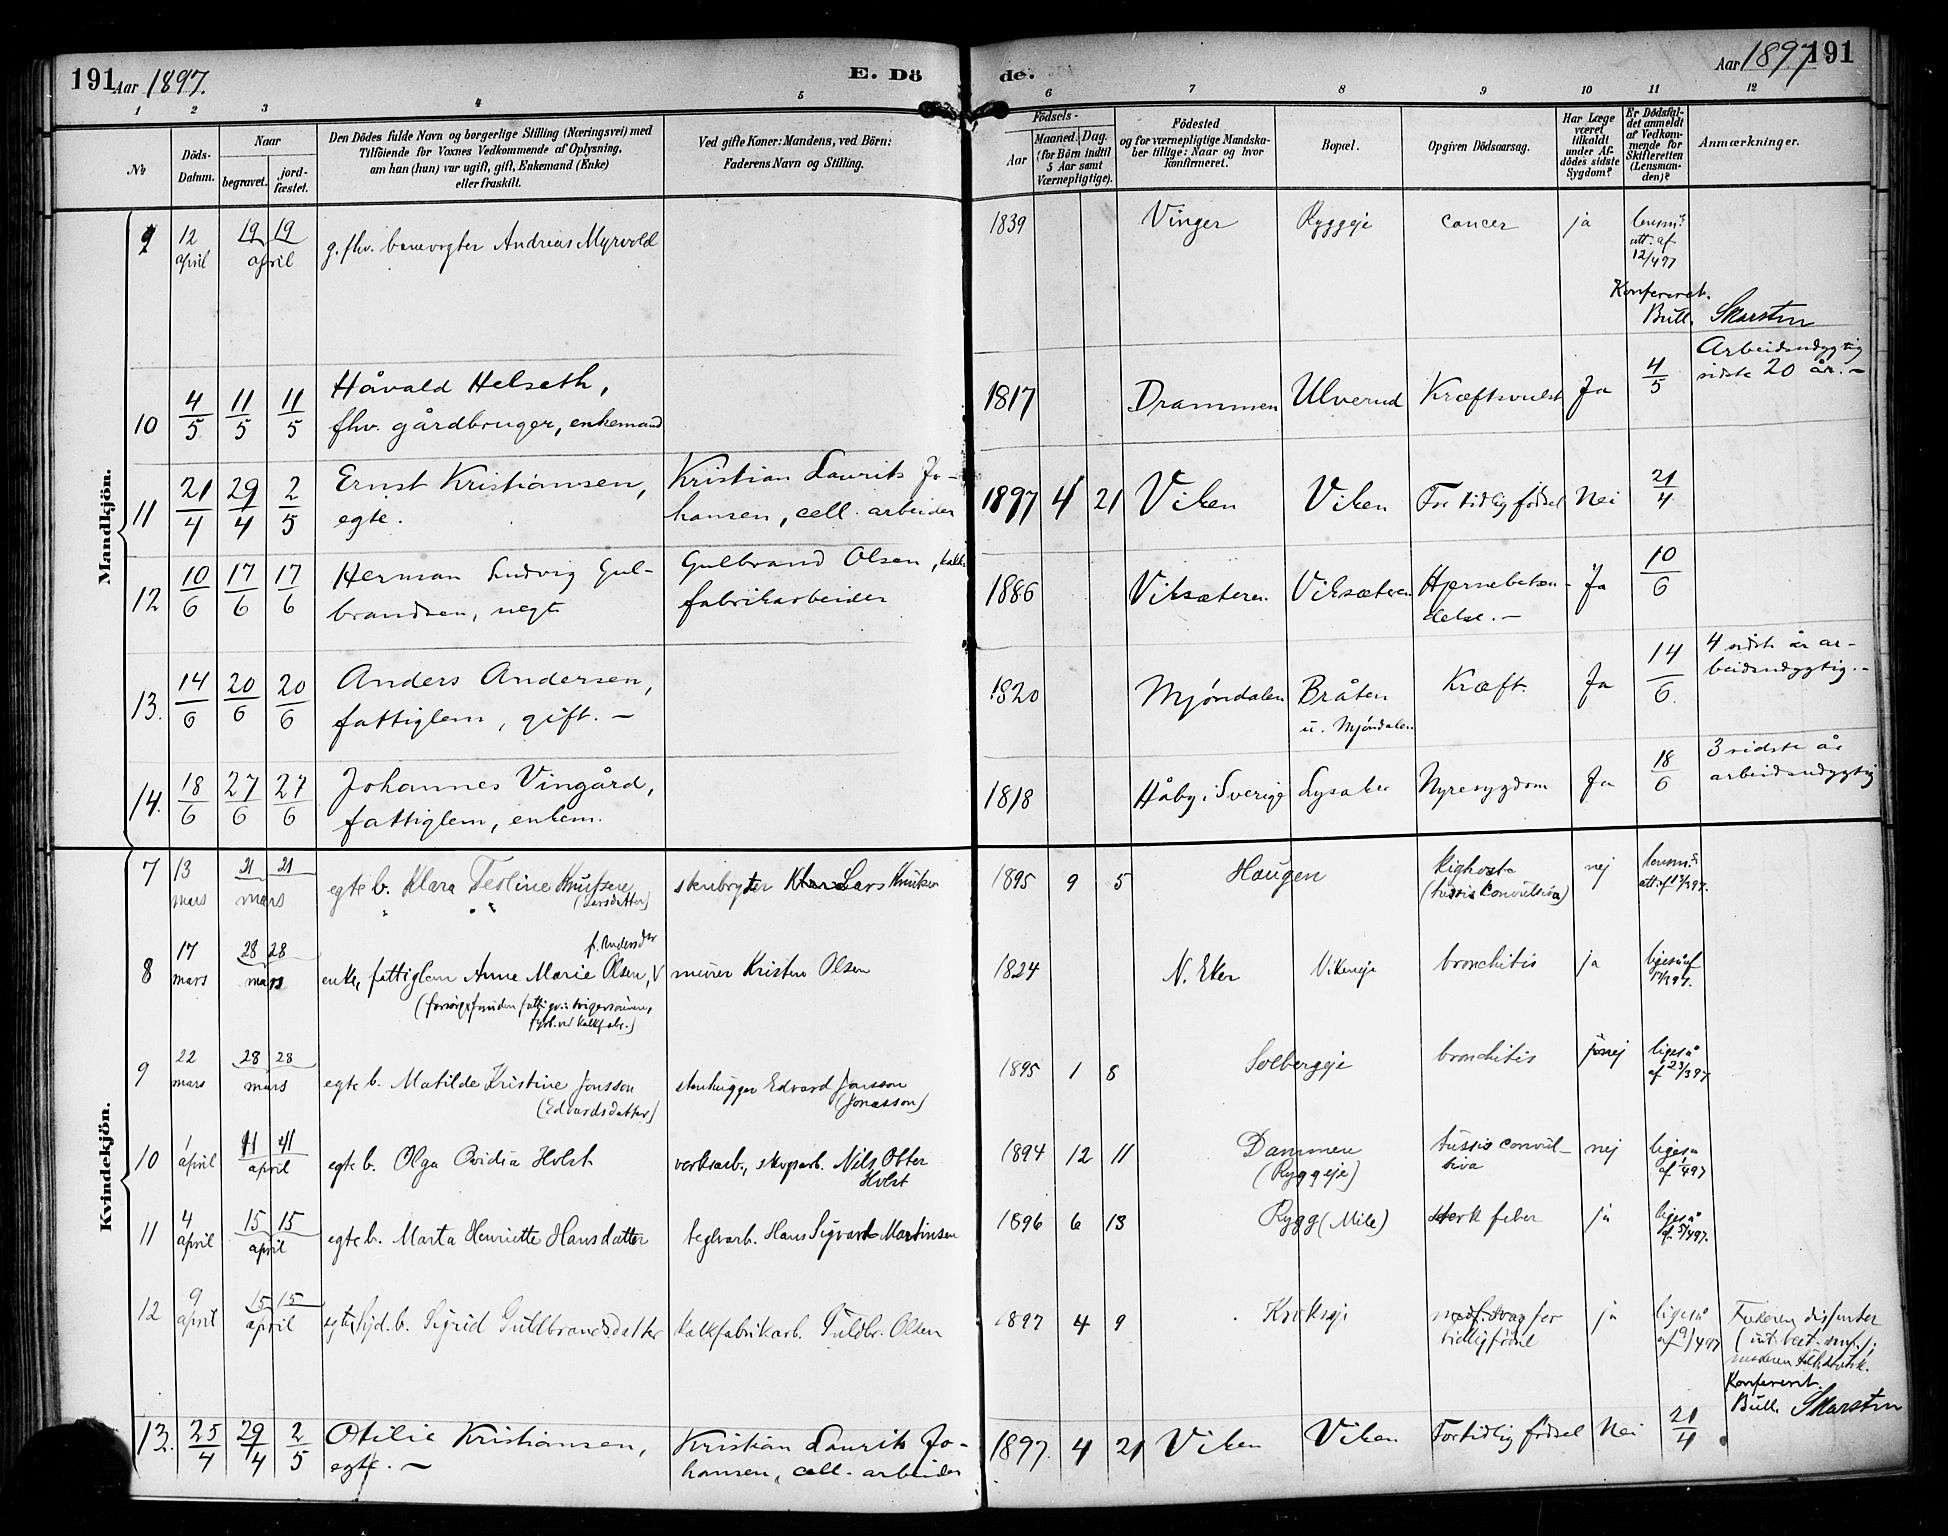 191 Aar 1897. E. Dö
de. Aar 1897 191
1 2 3 4 5 6 7 8 9 10 11 12
No
Döds-
Datum.
Naar
begravet.
jord-
fæstet.
Den Dödes fulde Navn og borgerlige Stilling (Næringsvei) med
Tilföiende for Voxnes Vedkommende af Oplysning,
om han (hun) var ugift, gift, Enkemand (Enke)
eller fraskilt.
Ved gifte Koner: Mandens, ved Börn:
Faderens Navn og Stilling.
Födsels-
Aar
Maaned. Dag.
(for Börn indtil
5 Aar samt
Værnepligtige).
Födested
og for værnepligtige Mandska-
ber tillige: Naar og hvor
konfirmeret.
Bopæl.
Opgiven Dödsaarsag.
Har Læge
været
tilkaldt
under Af-
dödes sidste
Sygdom?
Er Dödsfal-
det anmeldt
af Vedkom-
mende for
Skifteretten
(Lensman-
den)?
Anmærkninger.
Mandkjön.
9 12 april 19 19 april g. fhv. banevogter Andreas Myrvold 1839 Vinger Ryggeje cancer ja lensm.
att. af
12/4 97
Konfereret.
Bull. Skarsten
10 4/5 11/5 11/5 Håvald Helseth,
fhv. gårdbruger, enkemand 1817 Drammen Ulverud Kræftsvulst Ja 4/5 Arbeidsudygtig
sidste 20 år. –
11 21/4 29/4 2/5 Ernst Kristiansen,
egte. Kristian Laurits Jo-
hansen, cell. arbeider 1897 4 21 Viken Viken For tidlig fødsel Nei 21/4
12 10/6 17/6 17/6 Herman Ludvig Gul-
brandsen, uegte Gulbrand Olsen, kalk-
fabrikarbeider 1886 Viksæteren Viksæteren Hjernebeten-
delse. – Ja 10/6
13. 14/6 20/6 20/6 Anders Andersen,
fattiglem, gift. – 1820 Mjøndalen Bråten
u. Mjøndalen Kræft. Ja 14/6. 4 sidste år ar-
beidsudygtig. –
14. 18/6 27/6 27/6 Johannes Vingård,
fattiglem, enkem. 1818 Håby i Sverige Lysaker Nyresygdom Ja 18/6 3 sidste år
arbeidsudygtig
Kvindekjön.
7 13 mars 21 21 mars egte b. Klara Teoline Knutsen
(Larsdatter) stenbryter Lars Knutsen 1895 9 5 Haugen kighoste
(tussis convulsiva) nej lensm.
att. af 13/3 97.
8 17 mars 28 28 mars f. Andersdtr
enke, fattiglem Anne Marie Olsen, murer Kristen Olsen 1824 N. Eker Vikeneje bronchitis ja ligeså af
17/3 97.
9 22 mars 28 28 mars egte b. Matilde Kristine Jonsson
(Edvardsdatter) stenhugger Edvard Jonsson
(Jonasson) 1895 1 8 Solbergeje bronchitis nej ligeså
af 23/3 97
10 1 april 11 11 april egte b. Olga Ovidia Holst verksarb., skogsarb. Nils Otter
Holst 1894 12 11 Dammen
(Ryggeje) tussis convul-
siva nej ligeså
af 1/4 97
11 4 april 15 15 april egte b. Marta Henriette Hansdatter teglvarb. Hans Sigvart Martinsen 1896 6 13 Rygg (Mile) sterk feber ja ligeså
af 5/4 97.
12 9 april 15 15 april egte, hjd. b. Sigrid Guldbrandsdatter kalkfabrikarb. Guldbr. Olsen 1897 4 9 Krokseje for
tidlig fødsel ja ligeså
af 9/4 97 Faderen dissenter
Konfereret.
Bull. Skarsten
13. 25/4 29/4 2/5 Otilie Kristiansen,
egte. – Kristian Laurits Jo-
hansen, cell. arbeider 1897. 4 21 Viken Viken For tidlig fødsel Nei 21/4